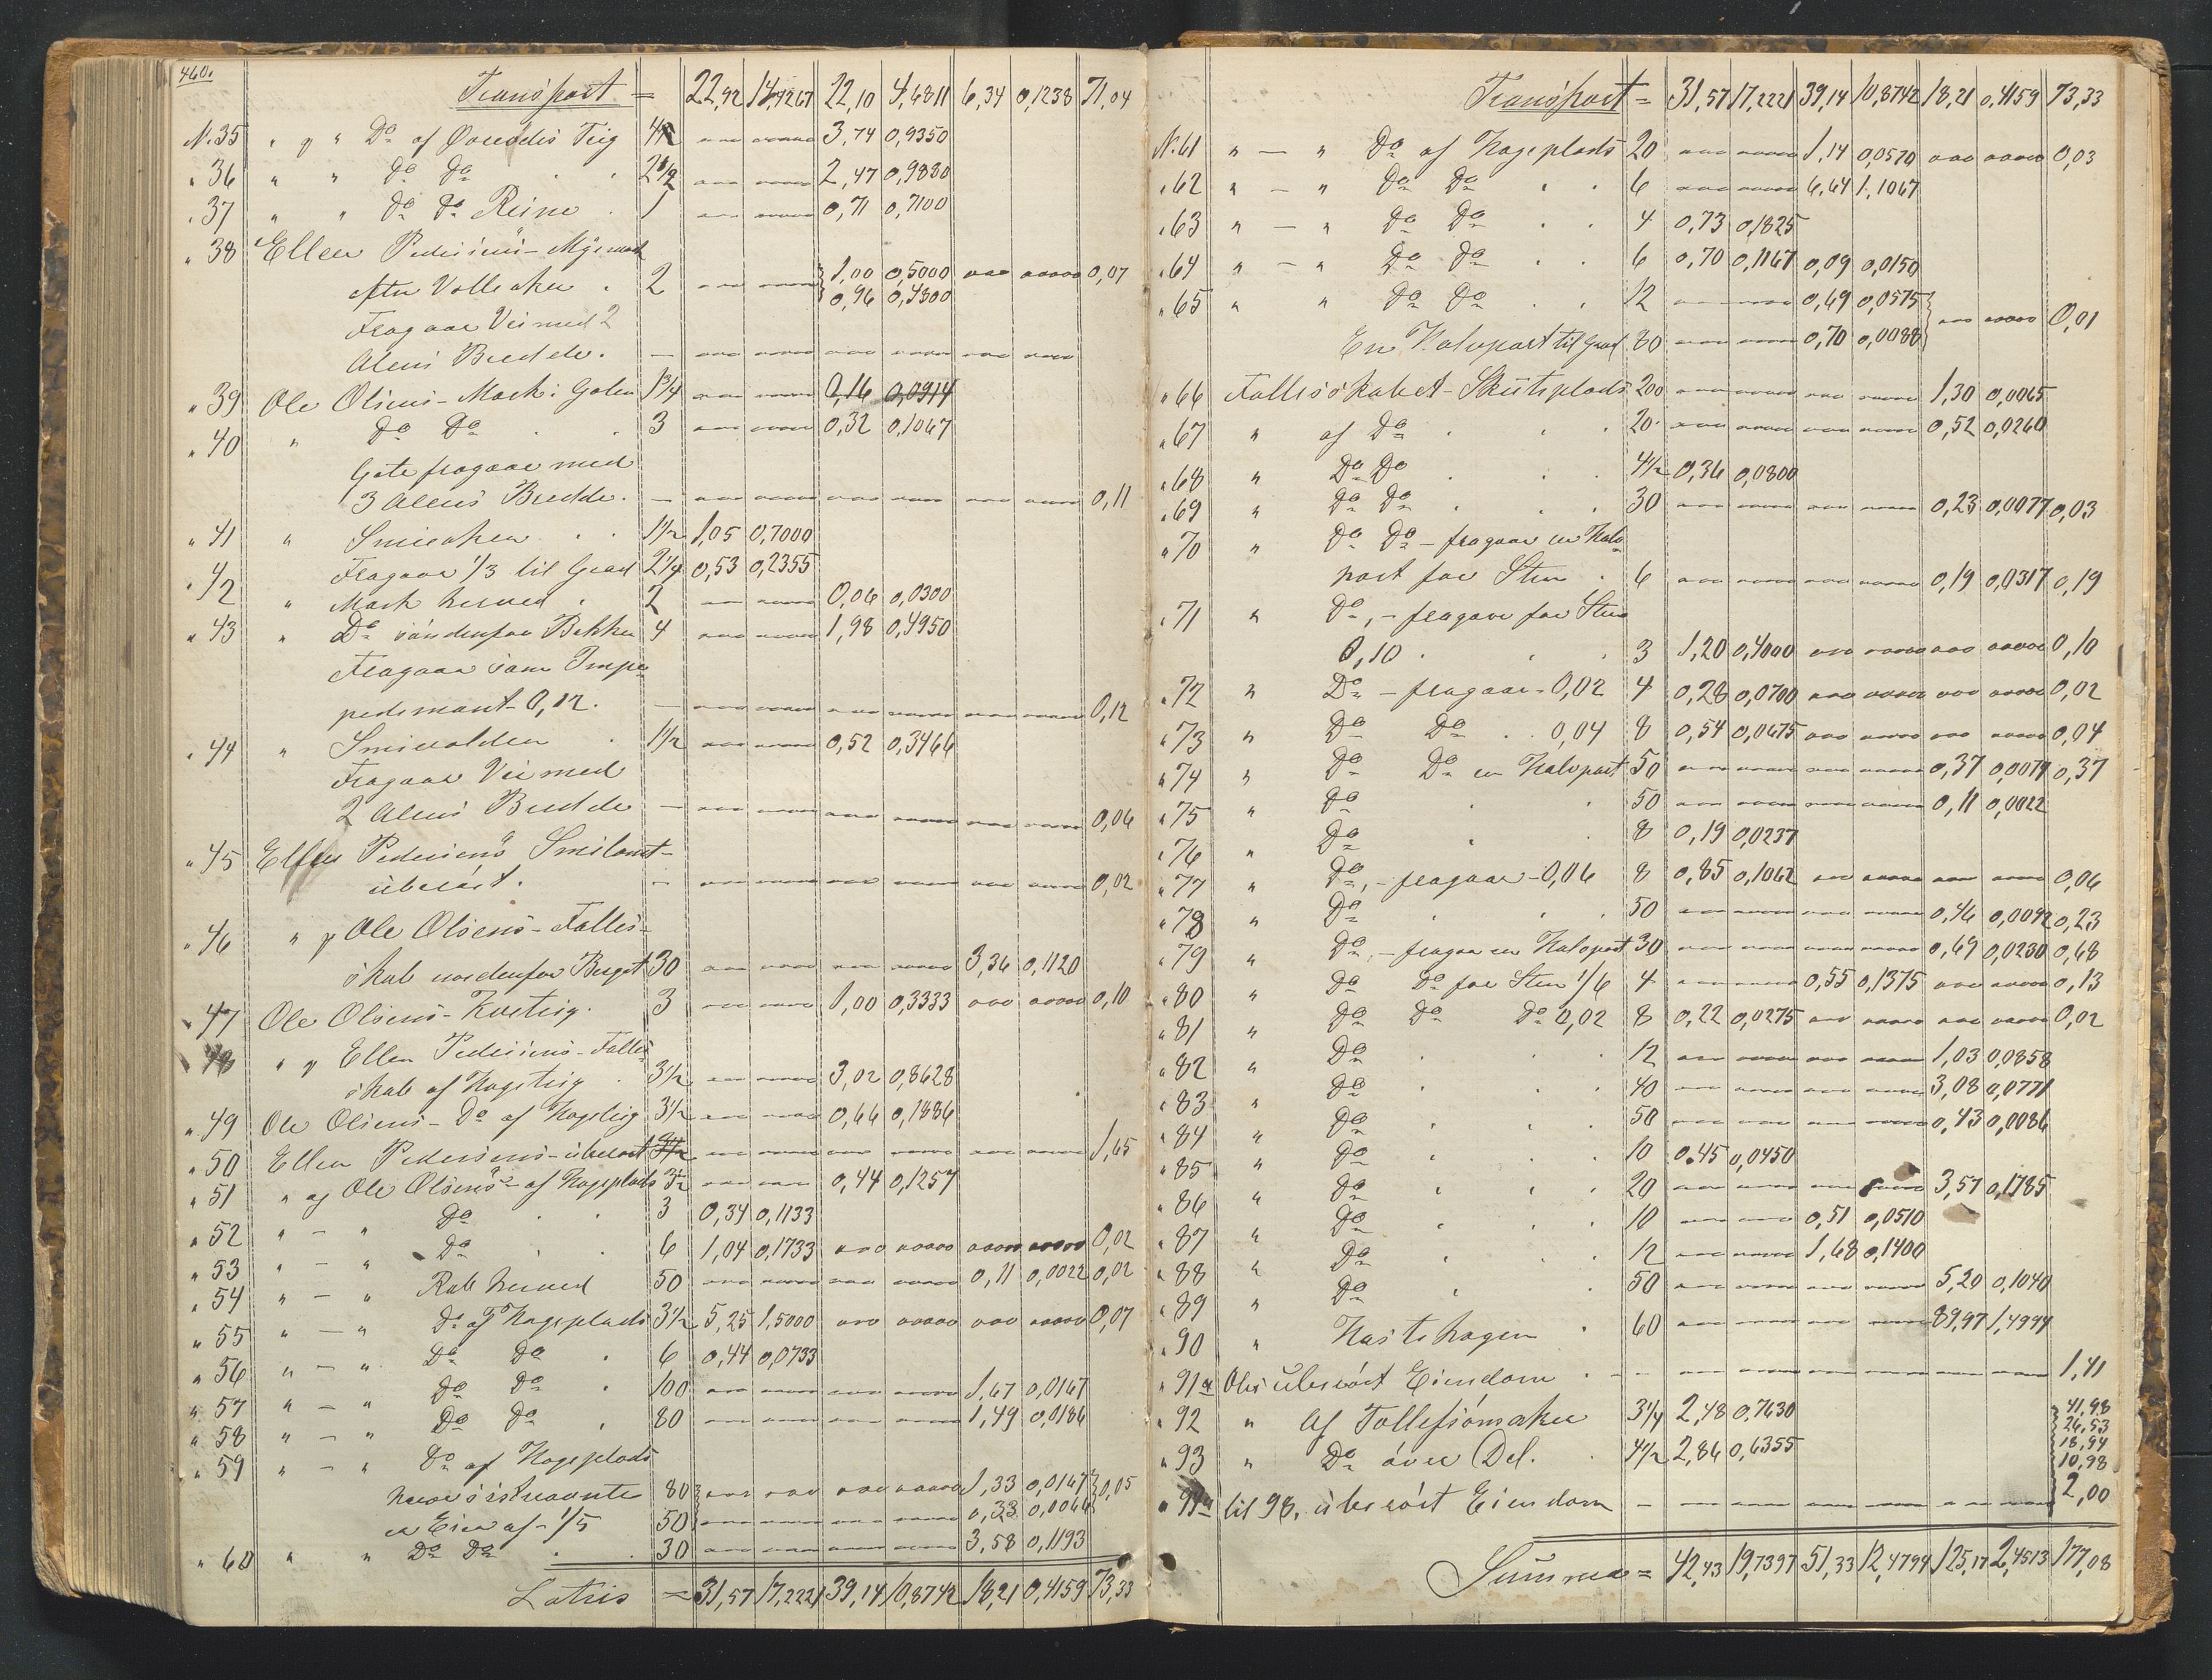 460.
Transport = 22,92 14,4267 22,10 4,6811 6,34 0,1238 71,04
N.35 " g " Do af Teig 4 3,74 0,9350
" 36 " " Do Do 2½ 2,47 0,9880
" 37 " " Do Do Reine 1 0,71 0,7100
" 38 Ellen Pedersens -
efter Volleaker 2 1,00 0,5000 0,07
0,96 0,4800
Fragaar Vei med 2
Alens Bredde.
" 39 Ole Olsens - Mark i Golen 1¾ 0,16 0,0914
" 40 " Do Do 3 0,32 0,1067
Gote fragaar med
3 Alens Bredde. 0,11
" 41 " Smieaker 1½ 1,05 0,7000
Fragaar 1/3 til Grad 2¼ 0,53 0,2355
" 42 " Mark herved 2 0,06 0,0300
" 43 " Do söndenfor Bekken 4 1,98 0,4950
Fragaar som Impe-
pediment 0,12. 0,12
" 44 " Smievolden 1½ 0,52 0,3466
Fragaar Vei med
2 Alens Bredde 0,06
" 45 Ellen Pedersens Smitomt -
ubesaást. 0,02
" 46 " g Ole Olsens - Fælles-
skab nordenfor Berget 30 3,36 0,1120
" 47 Ole Olsens - teig. 3 1,00 0,3333 0,10
" 48 " g Ellen Pedersens - Fælles-
skab af Hageteig 3½ 3,02 0,8628
" 49 Ole Olsens - Do af Hageteig 3½ 0,66 0,1886
" 50 Ellen Pedersens - 1,65
" 51 " og Ole Olsens - af Hageplads 3½ 0,44 0,1257
" 52 " - " Do 3 0,34 0,1133
" 53 " - " Do 6 1,04 0,1733 0,02
" 54 " - " Rab herved 50 0,11 0,0022 0,02
" 55 " - " Do af Hageplads 3½ 5,25 1,5000 0,07
" 56 " - " Do Do 6 0,44 0,0733
" 57 " - " Do Do 100 1,67 0,0167
" 58 " - " Do Do 80 1,49 0,0186
" 59 " - " Do af Hageplads
80 1,33 0,0167 0,05
er Eier af - 1/5 50 0,33 0,0066
" 60 " " Do Do 30 3,58 0,1193
Latus = 31,57 17,2221 39,14 10,8742 18,21 0,4159 73,33
Transport = 31,57 17,2221 39,14 10,8742 18,21 0,4159 73,33
N.61 " - " Do af Hageplads 20 1,14 0,0570 0,03
" 62 " - " Do Do 6 6,64 1,1067
" 63 " - " Do Do 4 0,73 0,1825
" 64 " - " Do Do 6 0,70 0,1167 0,09 0,0150
" 65 " " Do Do 12 0,69 0,0575 0,01
En Halvpart til Grad 80 0,70 0,0088
" 66 Fællesskabet - Skutsplads 200 1,30 0,0065
" 67 " af Do 20 0,52 0,0260
" 68 " Do Do 4½ 0,36 0,0800
" 69 " Do Do 30 0,23 0,0077 0,03
" 70 " Do Do - fragaar en Halv-
part for Sten 6 0,19 0,0317 0,19
" 71 " Do, - fragaar for Sten
0,10 3 1,20 0,4000 0,10
" 72 " Do - fragaar - 0,02 4 0,28 0,0700 0,02
" 73 " Do Do 0,04 8 0,54 0,0675 0,04
" 74 " Do Do en Halvpart 50 0,37 0,0074 0,37
" 75 " Do 50 0,11 0,0022
" 76 " Do 8 0,19 0,0237
" 77 " Do, - fragaar - 0,06 8 0,85 0,1062 0,06
" 78 " Do 50 0,46 0,0092 0,23
" 79 " Do, - fragaar en Halvpart 30 0,69 0,0230 0,68
" 80 " Do Do for Sten 1/6 4 0,55 0,1375 0,13
" 81 " Do Do Do 0,02 8 0,22 0,0275 0,02
" 82 " Do 12 1,03 0,0858
" 83 " Do 40 3,08 0,0771
" 84 " Do 50 0,43 0,0086
" 85 " Do 10 0,45 0,0450
" 86 " Do 20 3,57 0,1785
" 87 " Do 10 0,51 0,0510
" 88 " Do 12 1,68 0,1400
" 89 " Do 50 5,20 0,1040
" 90 " Hastehagen 60 89,97 1,4994
" 91a Ols ubesaást Eiendom 1,41
" 92 " Af Tollefsömaker 3¼ 2,48 0,7630 41,98
26,53
" 93 " Do över Del. 4½ 2,86 0,6355 18,94
10,98
" 94a til 98. ubesaást Eiendom 2,00
Summa = 42,43 19,7397 51,33 12,4794 125,17 2,4513 177,08